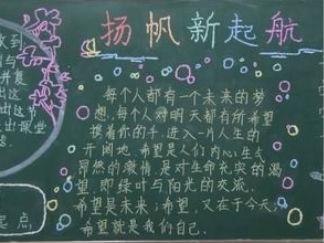 扬帆新起航
每个人都有一个未来的梦
想,每个人对明天都有所希望
携着你的手,进入一片人生的
开阔地,希望是人们内心生气
昂然的激情,是对生命充实的渴
望,即绿叶与阳光的交流.
希望是未来;希望,又在于今天;
希望就是我们自己.
收到
到与
并复
出这
出这书
上出课堂
点